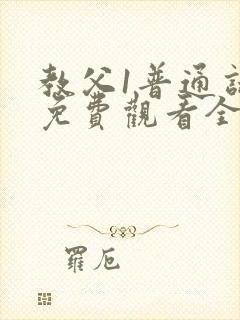 教父1普通話
免費觀看全
羅厄